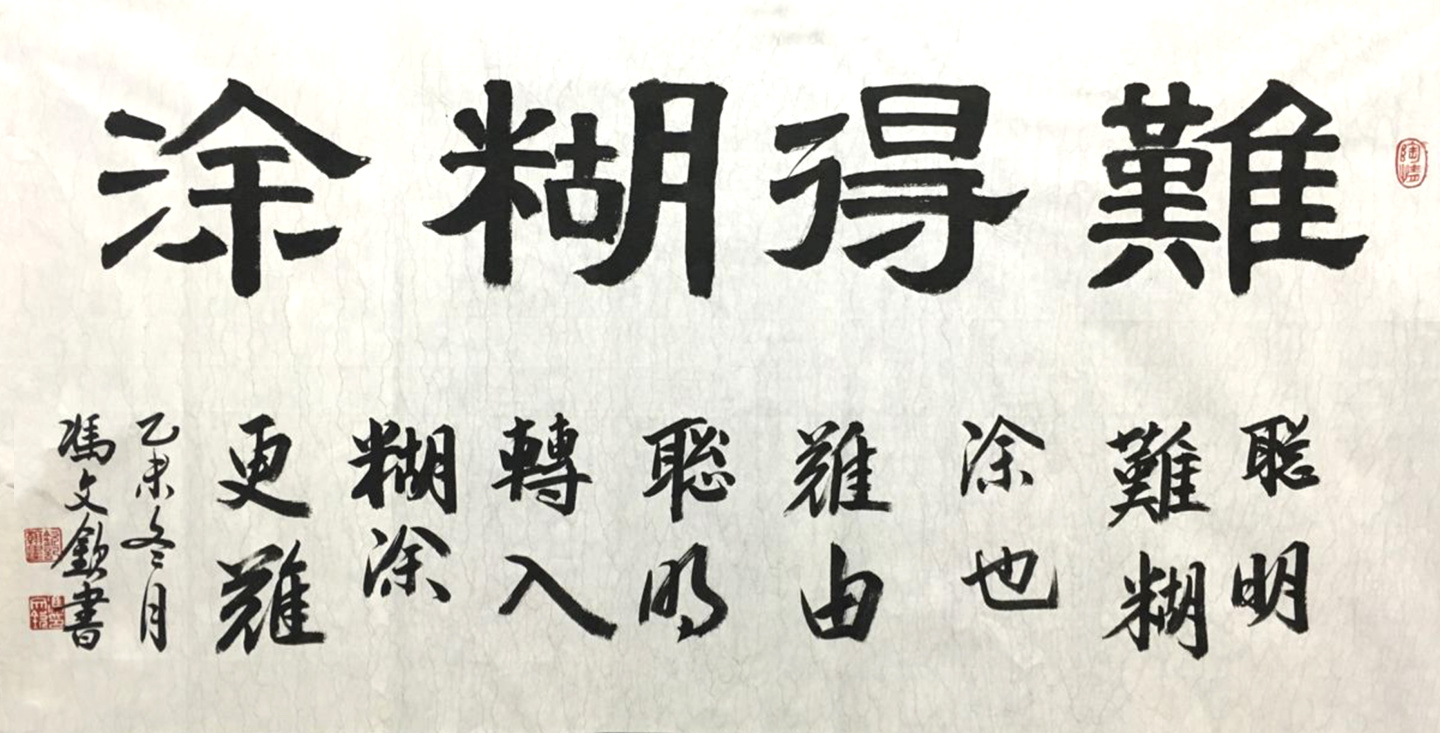 難得糊涂
聰明
難糊
涂也
難由
聰明
轉入
糊涂
更難
乙未冬月
馮文欽書